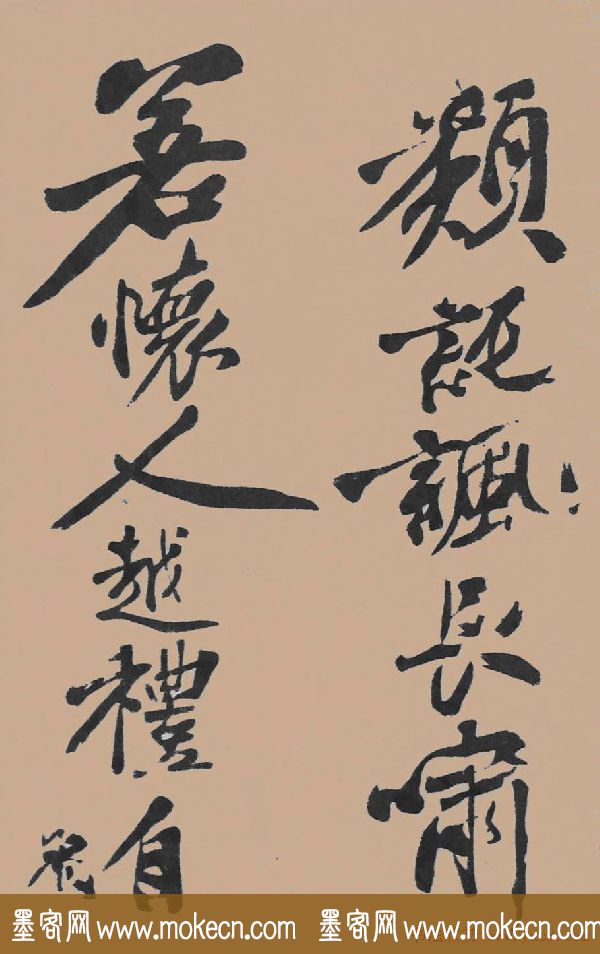 類託諷長嘯
若懷人越禮自
墨客网 www.mokecn.com 墨客网 www.mokecn.com